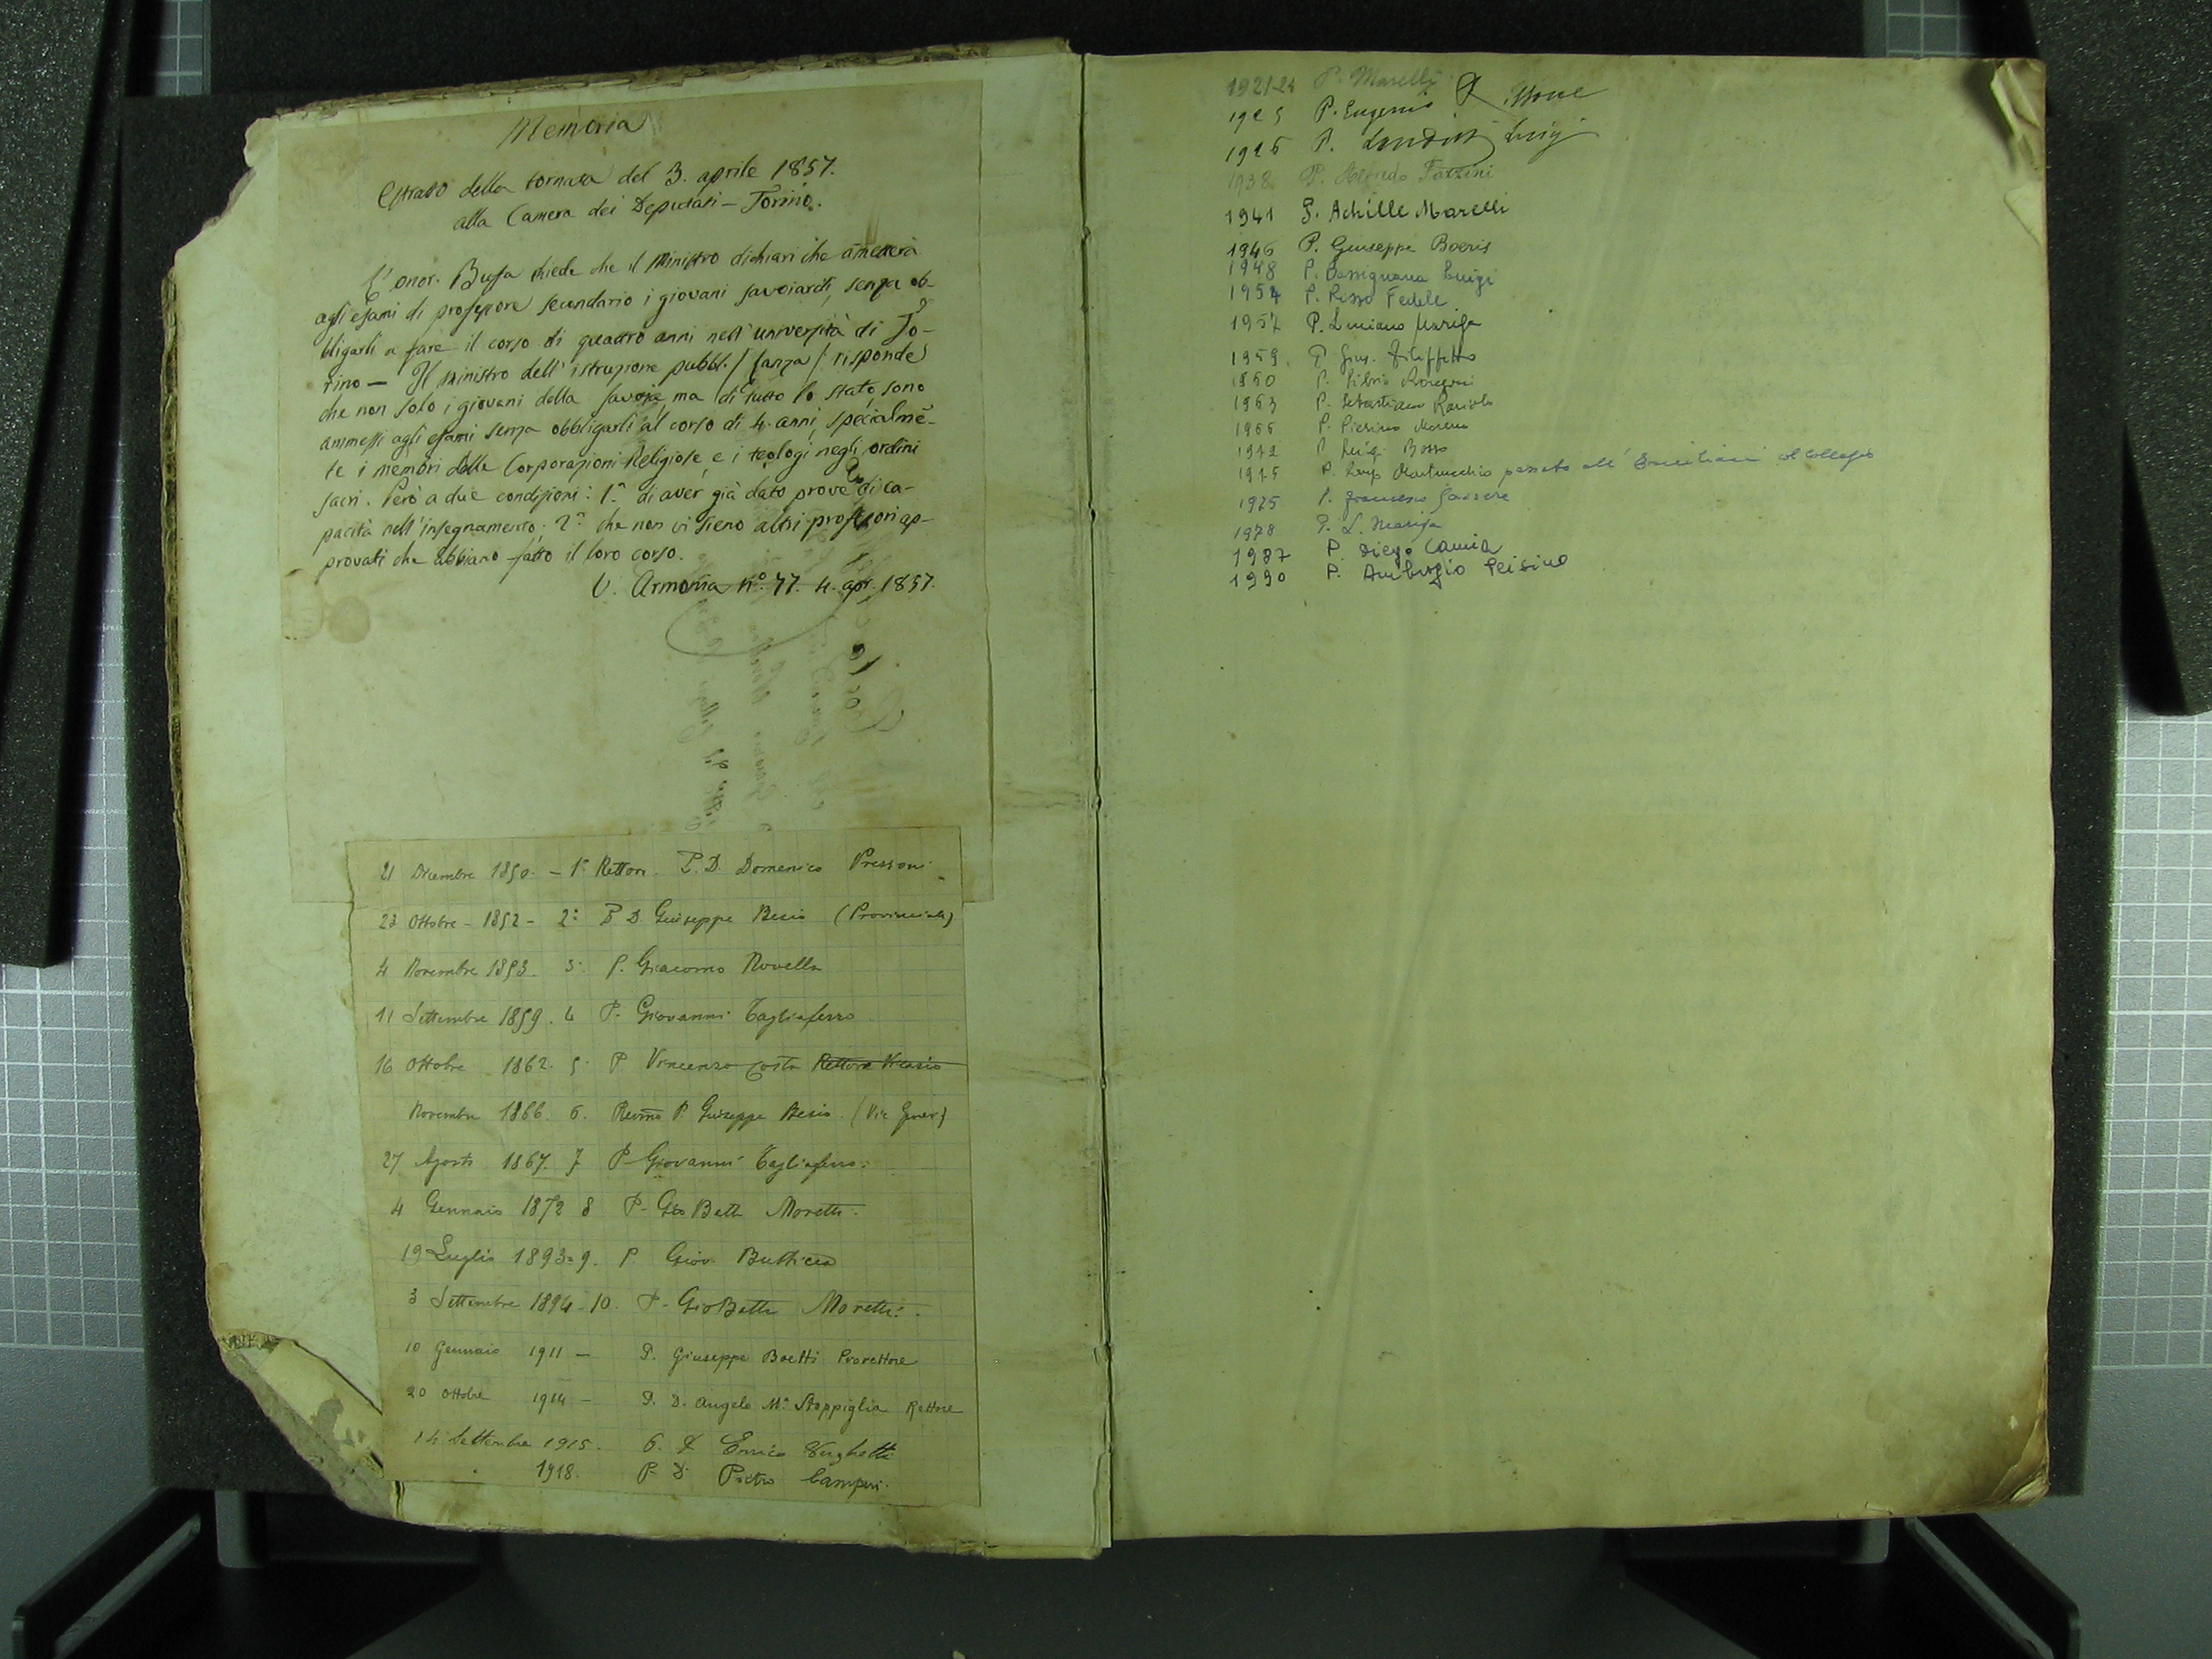 Memoria
Estratto della tornata del 3. aprile 1857.
alla Camera dei Deputati – Torino.
L'onor. Buffa chiede che il Ministro dichiari che ametterà
agli esami di professore secundario i giovani savoiardi, senza ob-
bligarli a fare il corso di quattro anni nell'università di To-
rino – Il Ministro dell'istruzione pubbl. / Lanza / risponde
che non solo i giovani della Savoja, ma di tutto lo stato, sono
ammessi agli esami senza obbligarli al corso di 4. anni, specialmē-
te i membri delle Corporazioni Religiose, e i teologi negli ordini
sacri. Però a due condizioni: 1.ª di aver già dato prove di ca-
pacità nell'insegnamento. 2.ª che non vi sieno altri professori ap-
provati che abbiano fatto il loro corso.
V. Armonia n.° 77. 4. apr. 1857.
21 Dicembre 1850. – 1° Rettore. P. D. Domenico Pressoni
23 Ottobre – 1852 – 2° P D. Giuseppe Besio (Provinciale)
4 Novembre 1853. 3° P. Giacomo Novella
11 Settembre 1859. 4 P. Giovanni Tagliaferro
16 Ottobre 1862. 5 P Vincenzo Costa Rettore Vicario
Novembre 1866. 6. Revmo P. Giuseppe Besio (Vic Gener)
27 Agosto 1867. 7 P. Giovanni Tagliaferro.
4 Gennaio 1872 8 P. Gio Batta Moretti.
19 Luglio 1893 = 9. P. Giov.
3 Settembre 1894 – 10. P. Gio Batta Moretti.
10 Gennaio 1911 – P. Giuseppe Boetti Prorettore
20 Ottobre 1914 – P. D. Angelo M.ª Stoppiglia Rettore
14 Settembre 1915. P. D. Enrico Verghetti
1918. P. D. Pietro Camperi.
1921-24 P. Marelli
1925 P. Eugenio
1926 P. Landini Luigi
1938 P. Alfredo Fazzini
1941 P. Achille Marelli
1946 P. Giuseppe Boeris
1948 P. Bassignana Luigi
1954 P. Risso Fedele
1957 P. Luciano Mariga
1959. P. Gius. Filippetto
1960 P. Silvio
1963 P. Sebastiano Raviolo
1966 P. Pierino Moreno
1972 P. Luigi Bosso
1975 P. passato all'Emiliani al Collegio
1975 P. Francesco
1978 P. L. Mariga
1987 P. Diego Camia
1990 P. Ambrogio Peisino